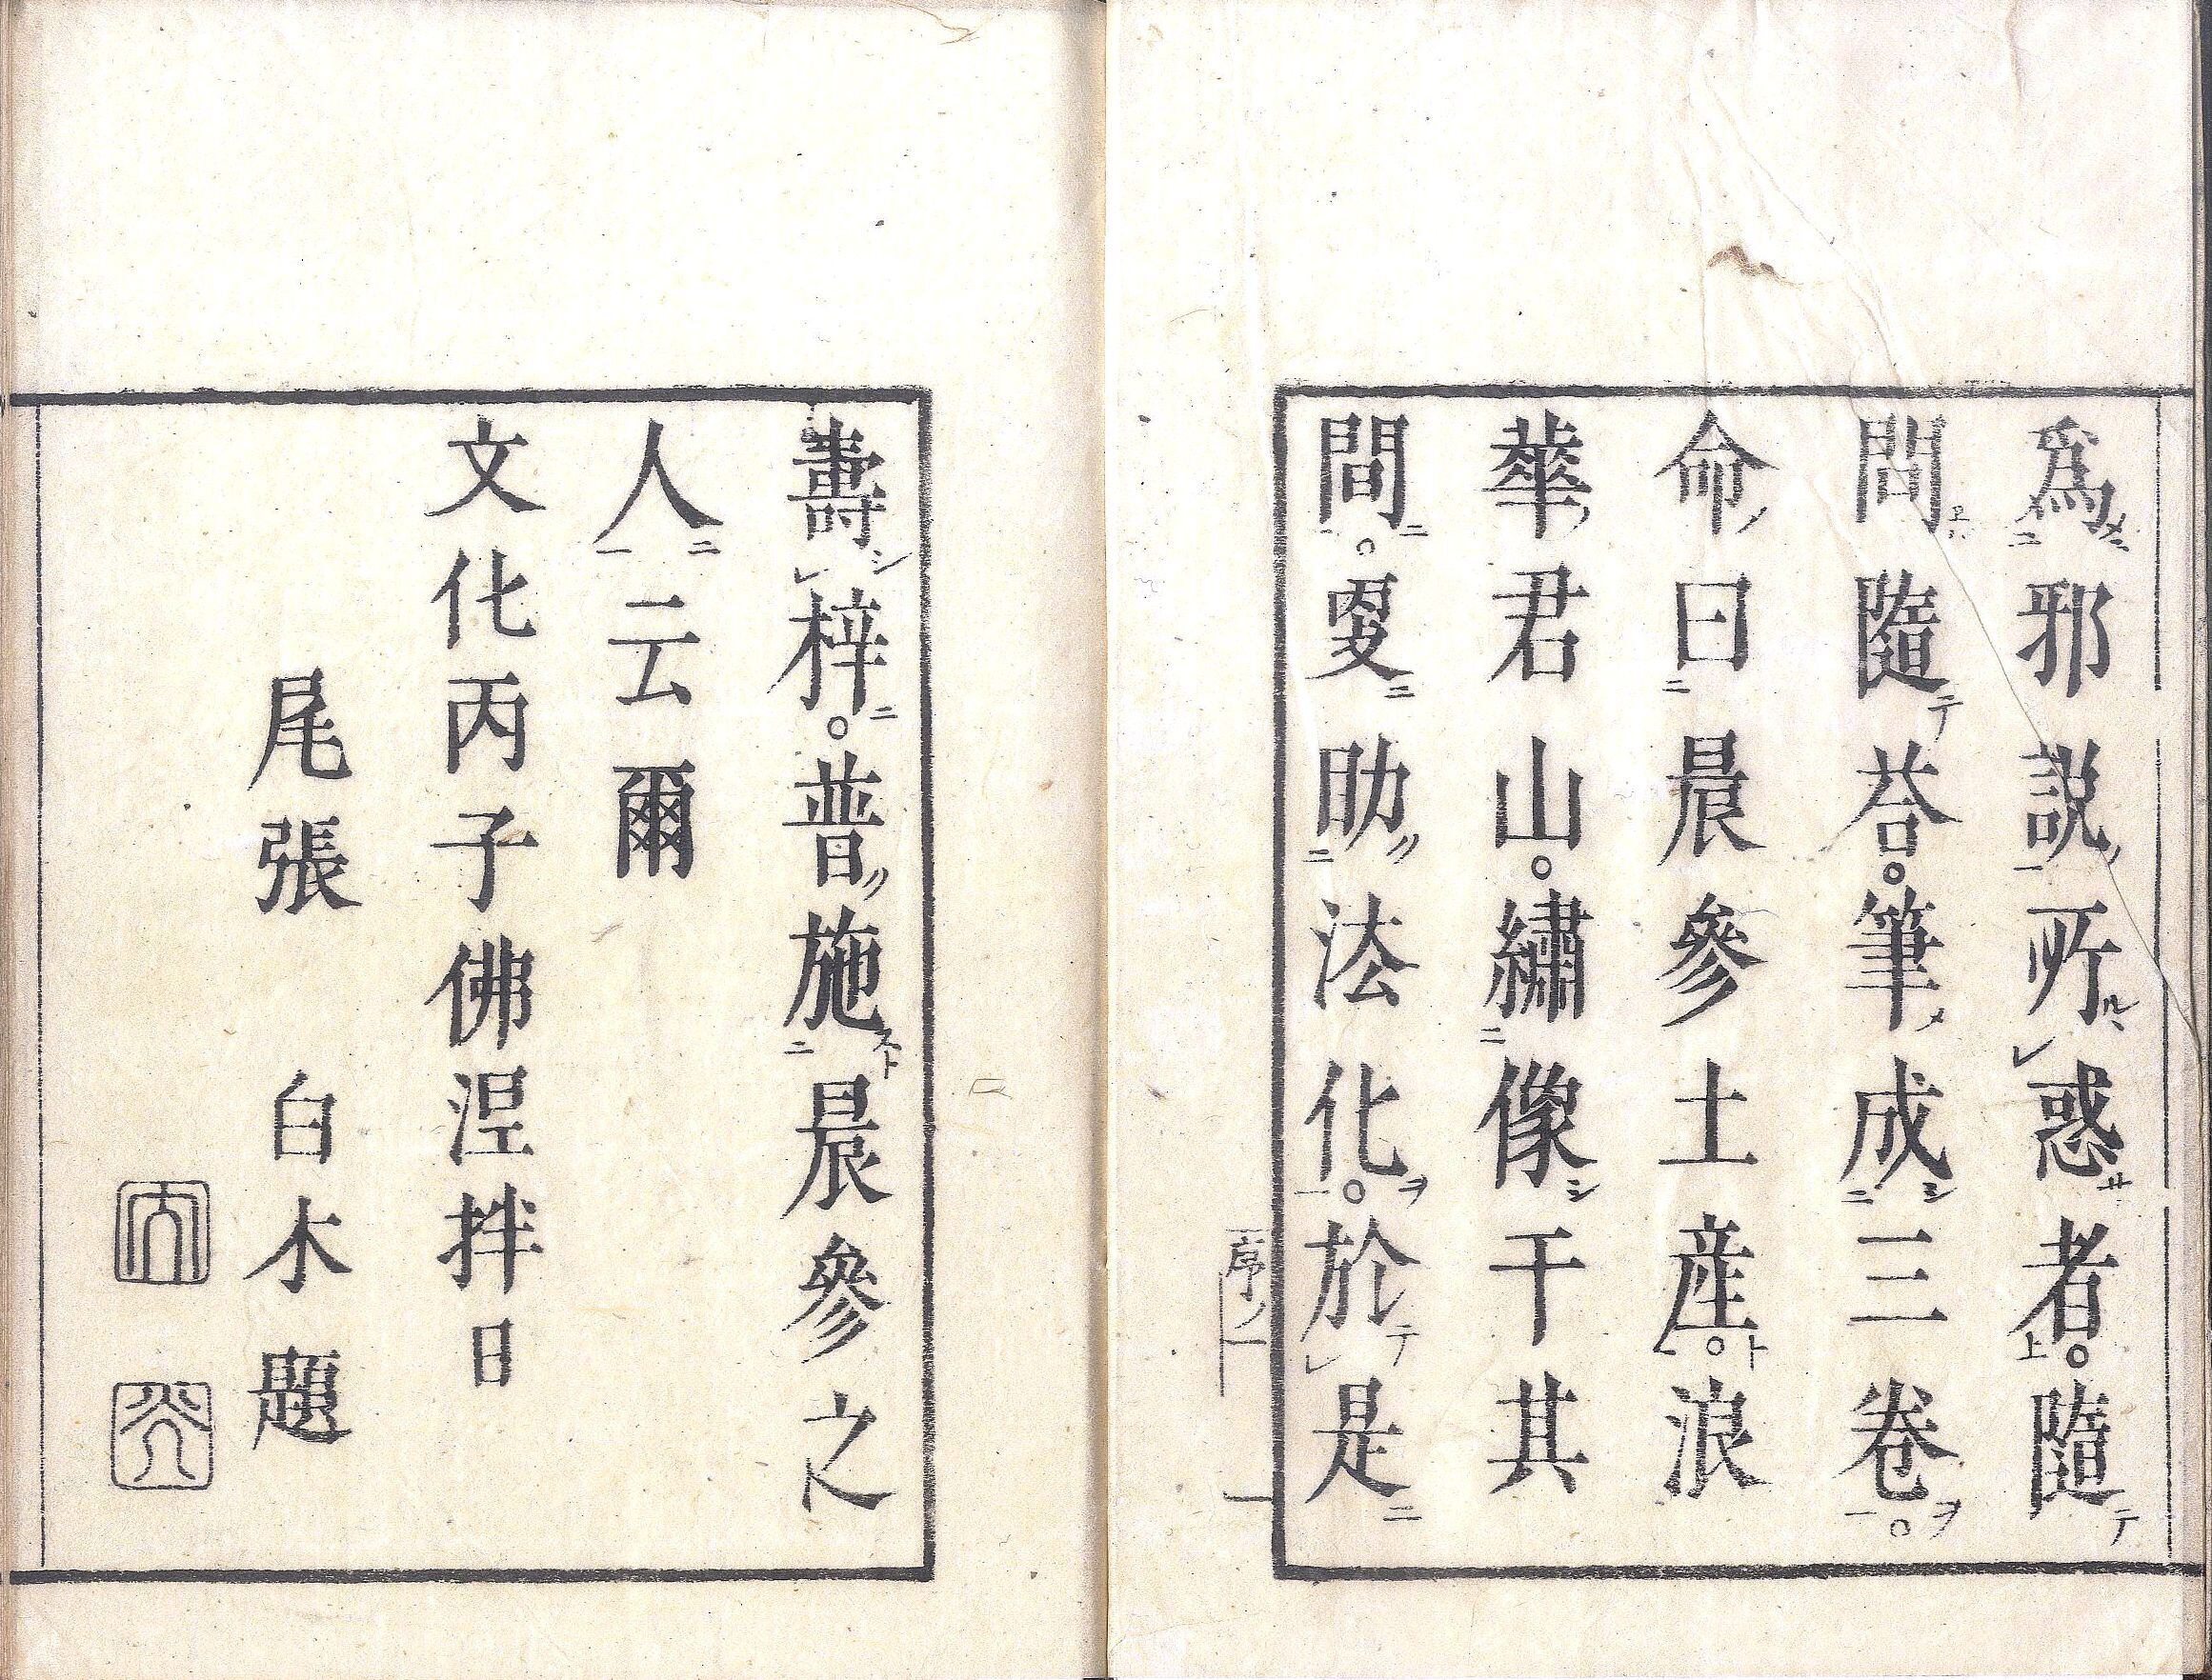 爲邪説所惑者。隨
問隨荅。筆成三卷。
命曰晨參土産。浪
華君山。繡像于其
間。更助法化。於是
序ノ一
一
壽梓。普施晨參之
人云爾
文化丙子佛涅拌日
尾張 白木題